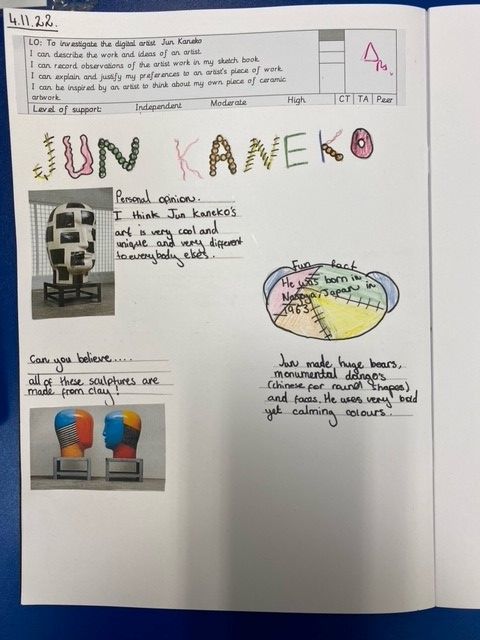 4.11.22.
LO: To investigate the digital artist Jun Kaneko
I can describe the work and ideas of an artist.
I can record observations of the artist work in my sketch book.
I can explain and justify my preferences to an artist's piece of work.
I can be inspired by an artist to think about my own piece of ceramic
artwork.
Level of support: Independent Moderate High CT TA Peer
JUN KANEKO
Personal opinion.
I think Jun Kaneko's
art is very cool and
unique and very different
to everybody elses.
Fun fact
He was born in
Nagoya, Japan in
1963
Can you believe.....
all of these sculptures are
made from clay!
Jun made huge bears,
monumental dangos
(chinese for round shapes)
and faces. He uses very bold
yet calming colours.